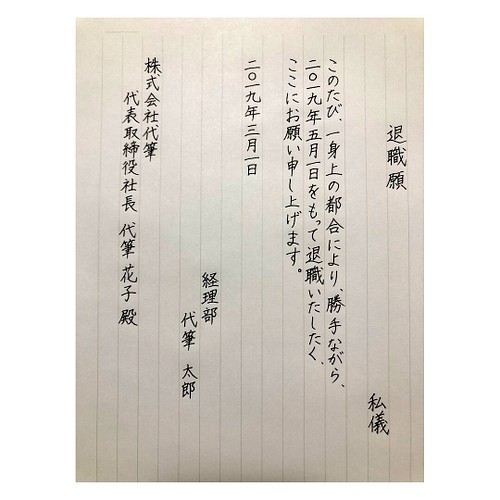 退職願
私儀
このたび、一身上の都合により、勝手ながら、
二〇一九年五月一日をもって退職いたしたく、
ここにお願い申し上げます。
二〇一九年三月一日
経理部
代筆 太郎
株式会社代筆
代表取締役社長 代筆 花子 殿